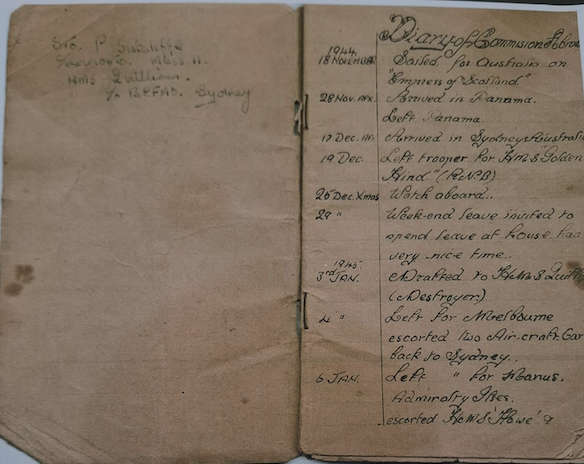 Sto. P. Sutcliffe
Mess 11.
HMS Quilliam.
c/o B.F.M.O. Sydney
Diary of Commission Abroa
1944
18 November Sailed for Australia on
"Empress of Scotland"
28 Nov. APX. Arrived in Panama.
Left Panama.
Dec. Arrived in Sydney Australia
19 Dec. Left trooper for HMS "Golden
Hind" (RNB)
25 Dec. Xmas Watch aboard..
29 " Week-end leave invited to
spend leave at house had
very nice time.
1945.
3rd JAN. Drafted to HMS Quill
(Destroyer)
4 " Left for Melbourne
escorted two Air-craft Car
back to Sydney..
6 JAN. Left " for Manus.
Admiralty Isles.
escorted HMS 'Howe' &